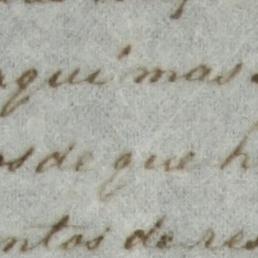 aqui mas
os de que h
ntos de res